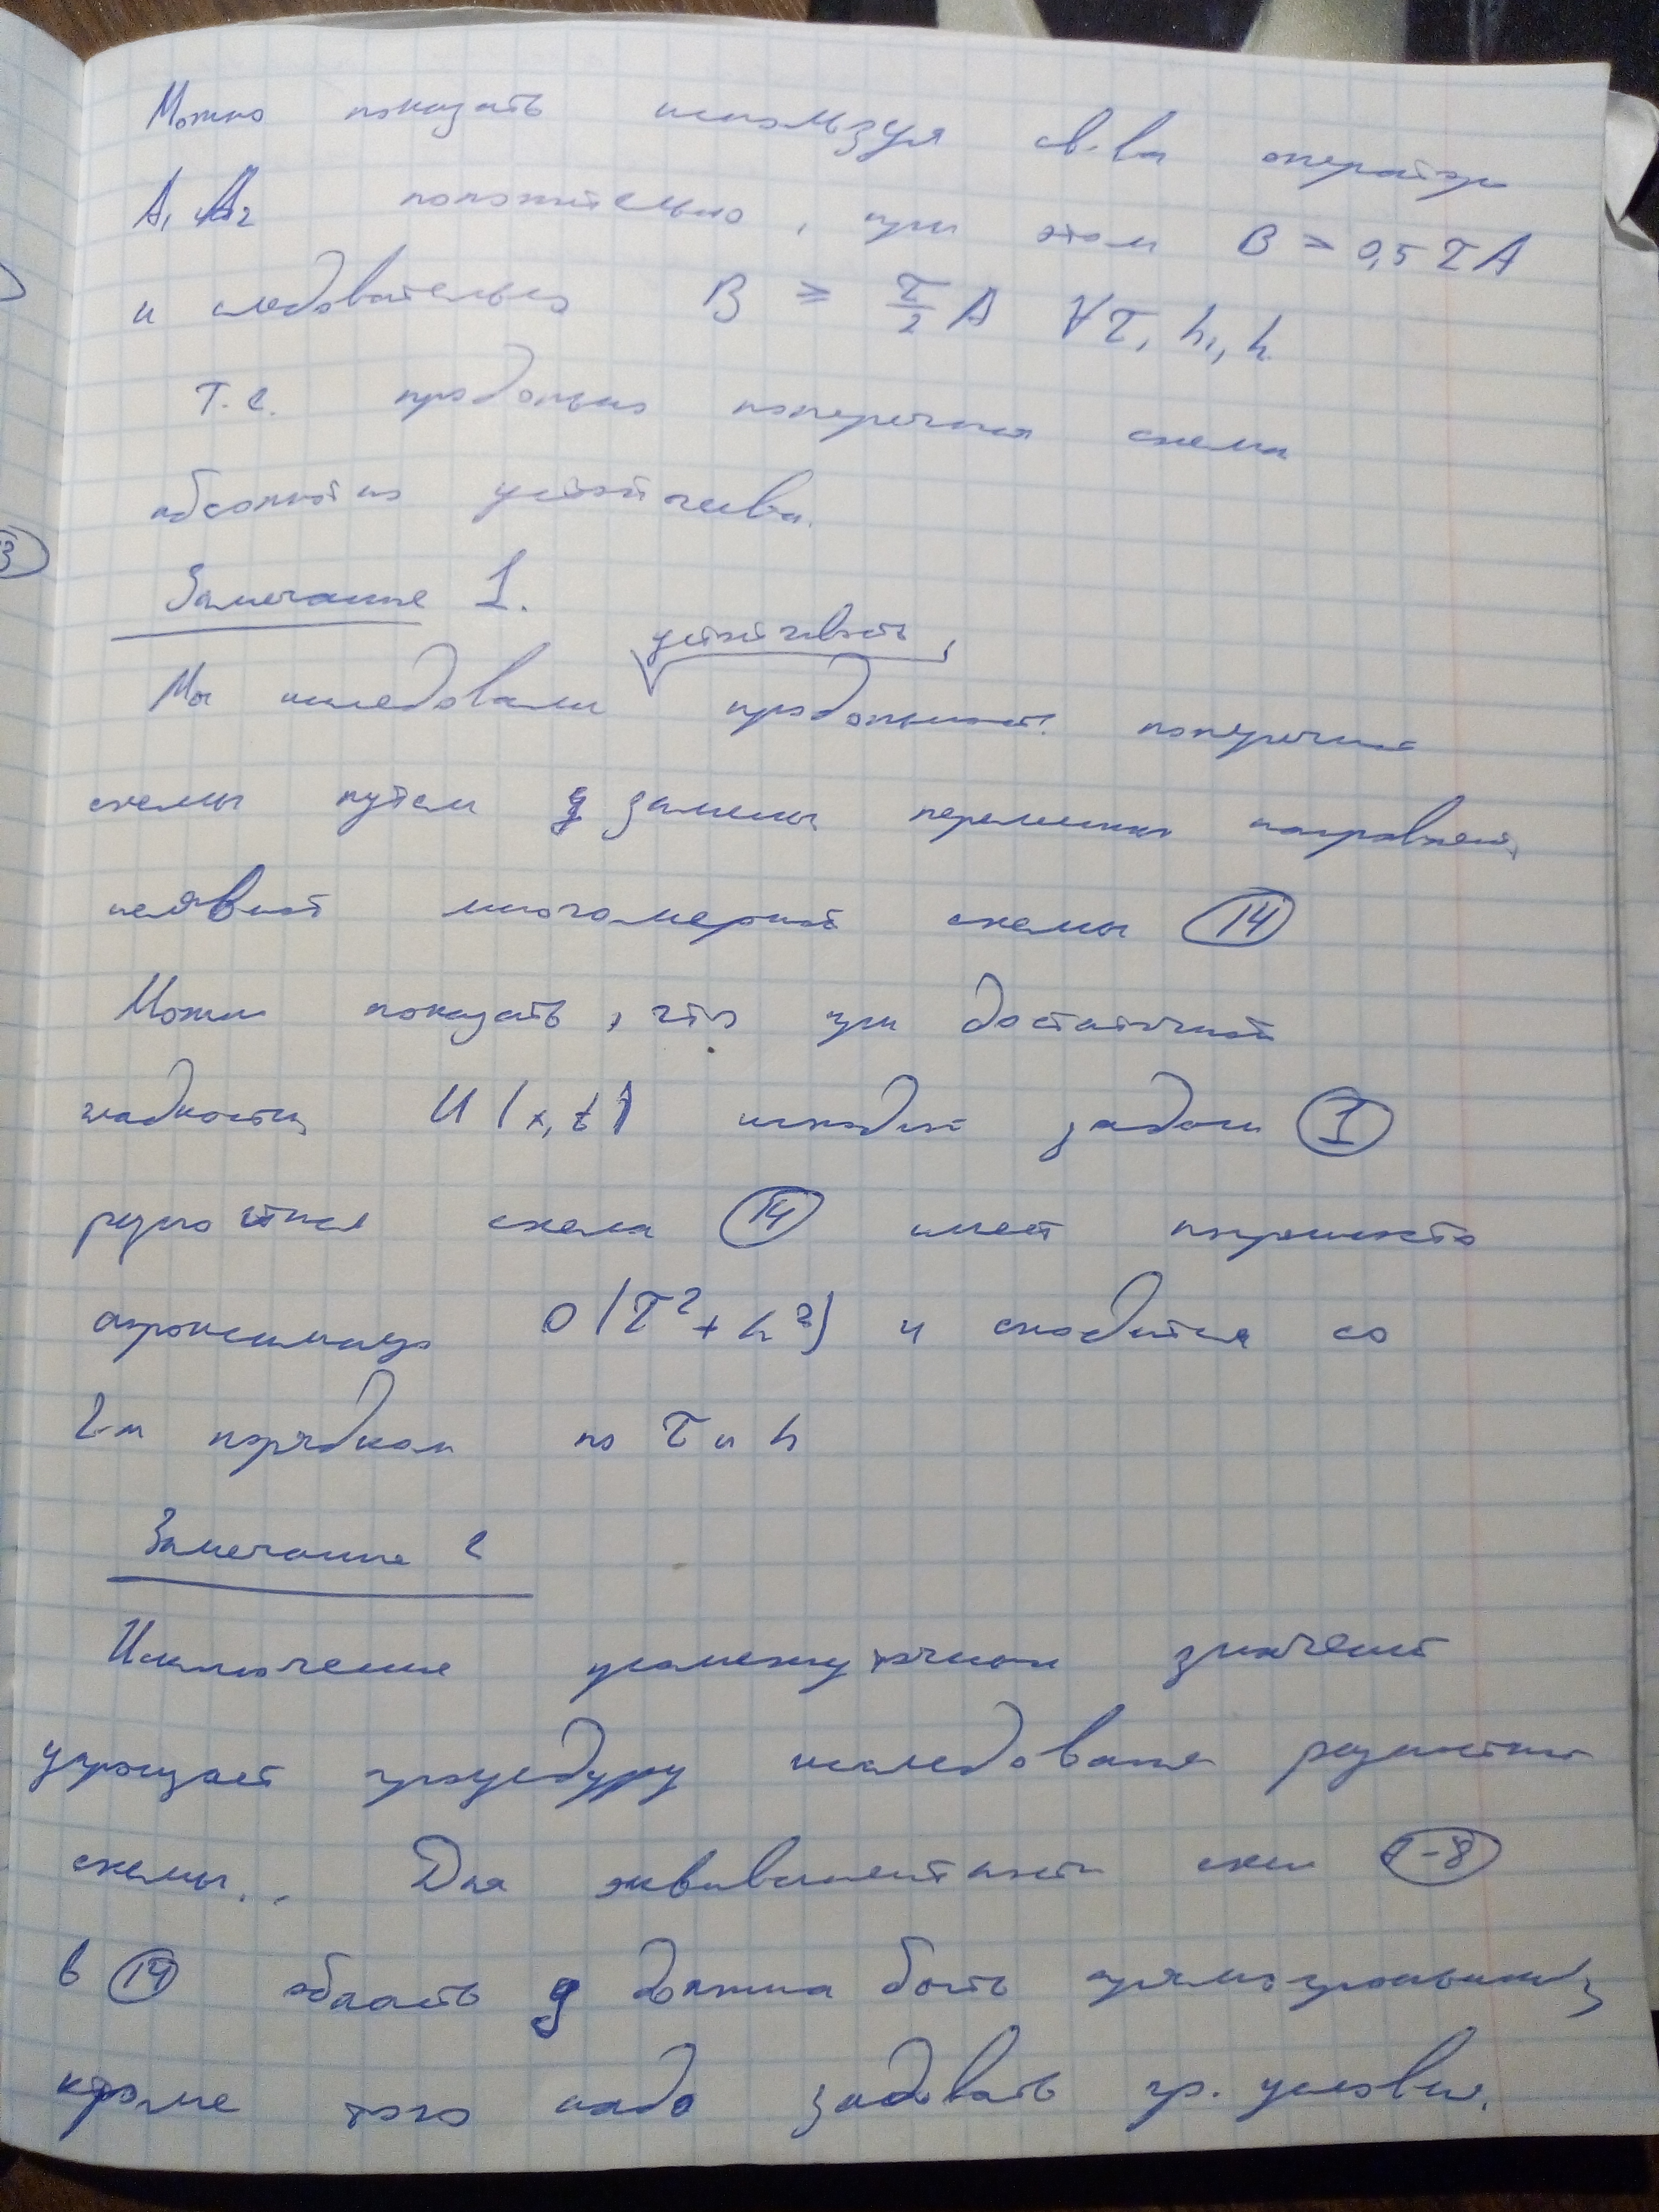 Можно показать используя св-ва оператора
A₁ и A₂ положительно, при этом B ≥ 0,5 τ A
и следовательно B ≥ τ/2 A ∀ τ, h₁, h
т.е. продольно поперечная схема
абсолютно устойчива.
Замечание 1.
устойчивость
Мы исследовали продольной поперечной
схемы путем замены переменных направлений,
неявной многомерной схемы (14)
Можно показать, что при достаточной
гладкости U(x,t) исходной задачи (1)
разностная схема (14) имеет погрешность
аппроксимации O(τ² + h²) и сходится со
2-м порядком по τ и h
Замечание 2
Исключение промежуточных значений
упрощает процедуру исследования разностной
схемы... Для эквивалентности схем -8
в (14) область g должна быть прямоугольником,
кроме того надо задавать гр. условия.